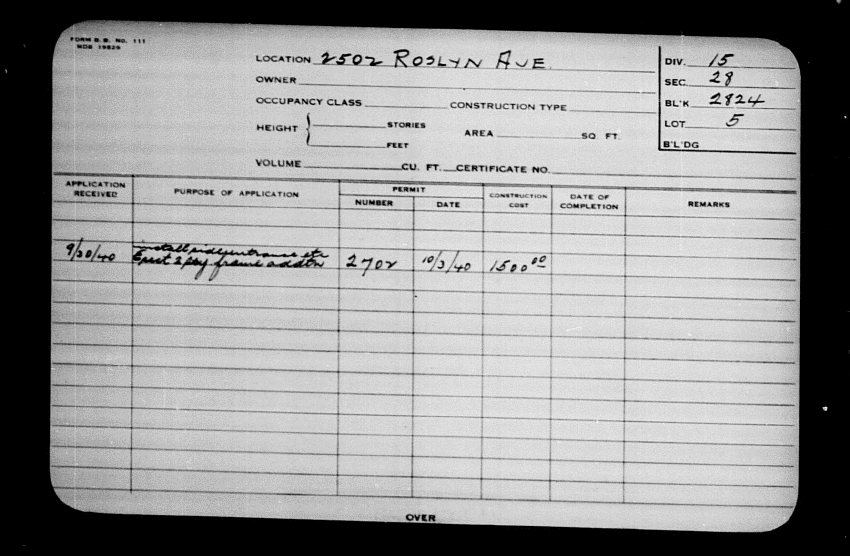 FORM B. B. NO. 111
MOB 19829
LOCATION 2502 ROSLYN AVE.
DIV. 15
OWNER
SEC. 28
OCCUPANCY CLASS CONSTRUCTION TYPE
BL'K 2824
HEIGHT { STORIES
FEET
AREA SQ. FT.
LOT 5
B'L'DG
VOLUME CU. FT. CERTIFICATE NO.
APPLICATION RECEIVED PURPOSE OF APPLICATION PERMIT NUMBER DATE CONSTRUCTION COST DATE OF COMPLETION REMARKS
install side entrance etc
9/30/40 Erect 2 sty frame addtn 2702 10/3/40 1500 00
OVER